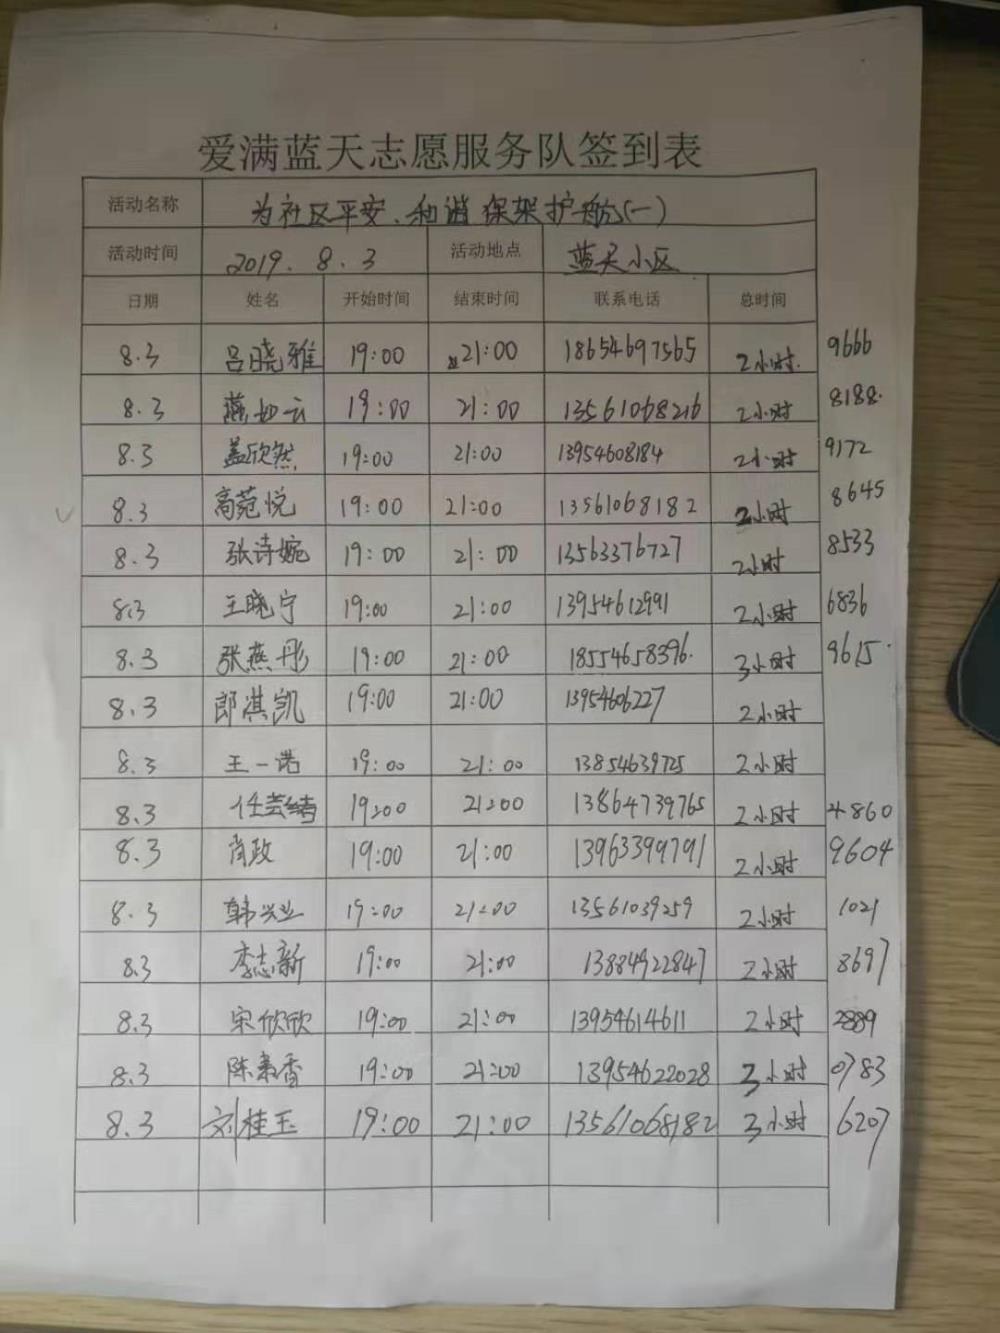 爱满蓝天志愿服务队签到表
活动名称 为社区平安、和谐保架护航(一)
活动时间 2019.8.3 活动地点 蓝天小区
日期 姓名 开始时间 结束时间 联系电话 总时间
8.3 吕晓雅 19:00 21:00 18654697565 2小时. 9666
8.3 燕如云 19:00 21:00 13561068216 2小时 8188.
8.3 盖欣然 19:00 21:00 13954608184 2小时 9172
8.3 高菀悦 19:00 21:00 13561068182 2小时 8645
8.3 张诗婉 19:00 21:00 13563376727 2小时 8533
8.3 王晓宁 19:00 21:00 13954612991 2小时 6836
8.3 张燕彤 19:00 21:00 18554658396. 3小时 9615.
8.3 郎淇凯 19:00 21:00 13954606227 2小时
8.3 王一诺 19:00 21:00 13854639725 2小时
8.3 任芸绮 19:00 21:00 13864739765 2小时 4860
8.3 肖政 19:00 21:00 13963399791 2小时 9604
8.3 韩兴业 19:00 21:00 13561039259 2小时 1021
8.3 李志新 19:00 21:00 13884922847 2小时 8697
8.3 宋欣欣 19:00 21:00 13954614611 2小时 2889
8.3 陈素香 19:00 21:00 13954622028 3小时 0783
8.3 刘桂玉 19:00 21:00 13561068182 3小时 6207